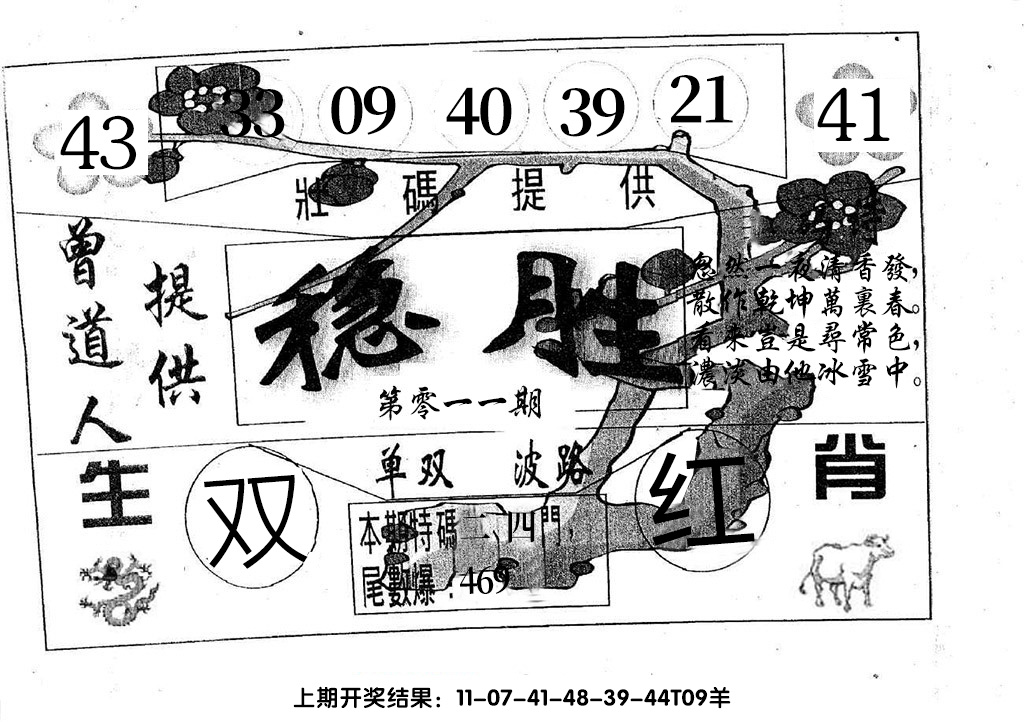 43 33 09 40 39 21 41
壯碼提供
曾道人
提供
稳胜
第零一一期
忽然一夜清香發，
散作乾坤萬裏春。
看來豈是尋常色，
濃淡由他冰雪中。
单双 波路
生肖
双
红
本期特碼二、四門，
尾數爆：469
上期开奖结果：11-07-41-48-39-44T09羊